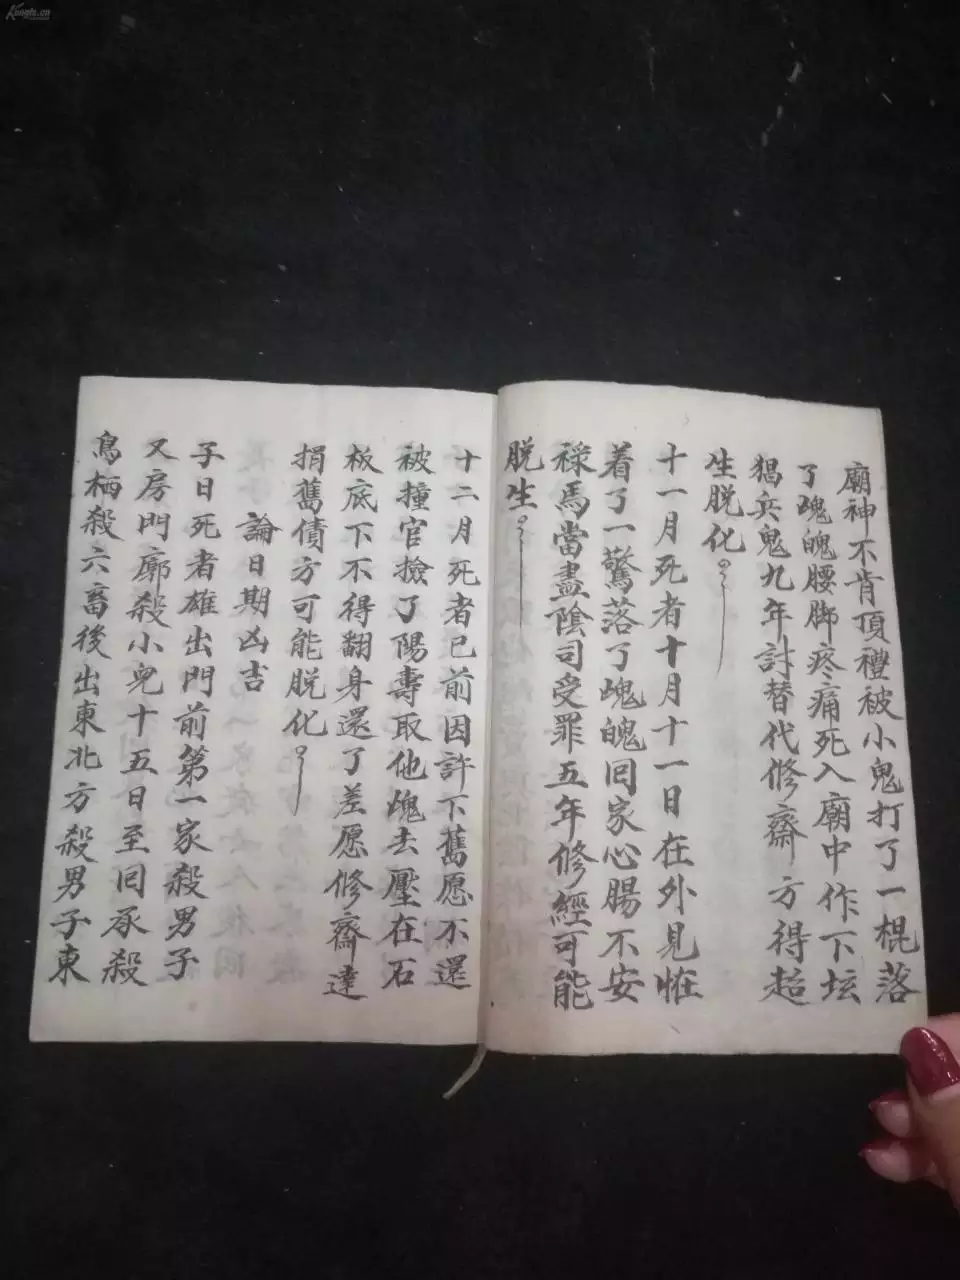 廟神不肯頂禮被小鬼打了一棍落
了魄魄腰脚疼痛死入廟中作下坛
猖兵鬼九年討替代修齋方得超
生脱化
十一月死者十月十一日在外見怪
着了一驚落了魄魄囘家心腸不安
祿馬當盡陰司受罪五年修經可能
脱生
十二月死者已前因許下舊愿不還
被撞官撿了陽壽取他魄去壓在石
板底下不得翻身還了差愿修齋達
捐舊債方可能脱化
論日期凶吉
子日死者雄出門前第一家殺男子
又房門廓殺小兒十五日至囘承殺
鳥栖殺六畜後出東北方殺男子東
Kongfz.cn